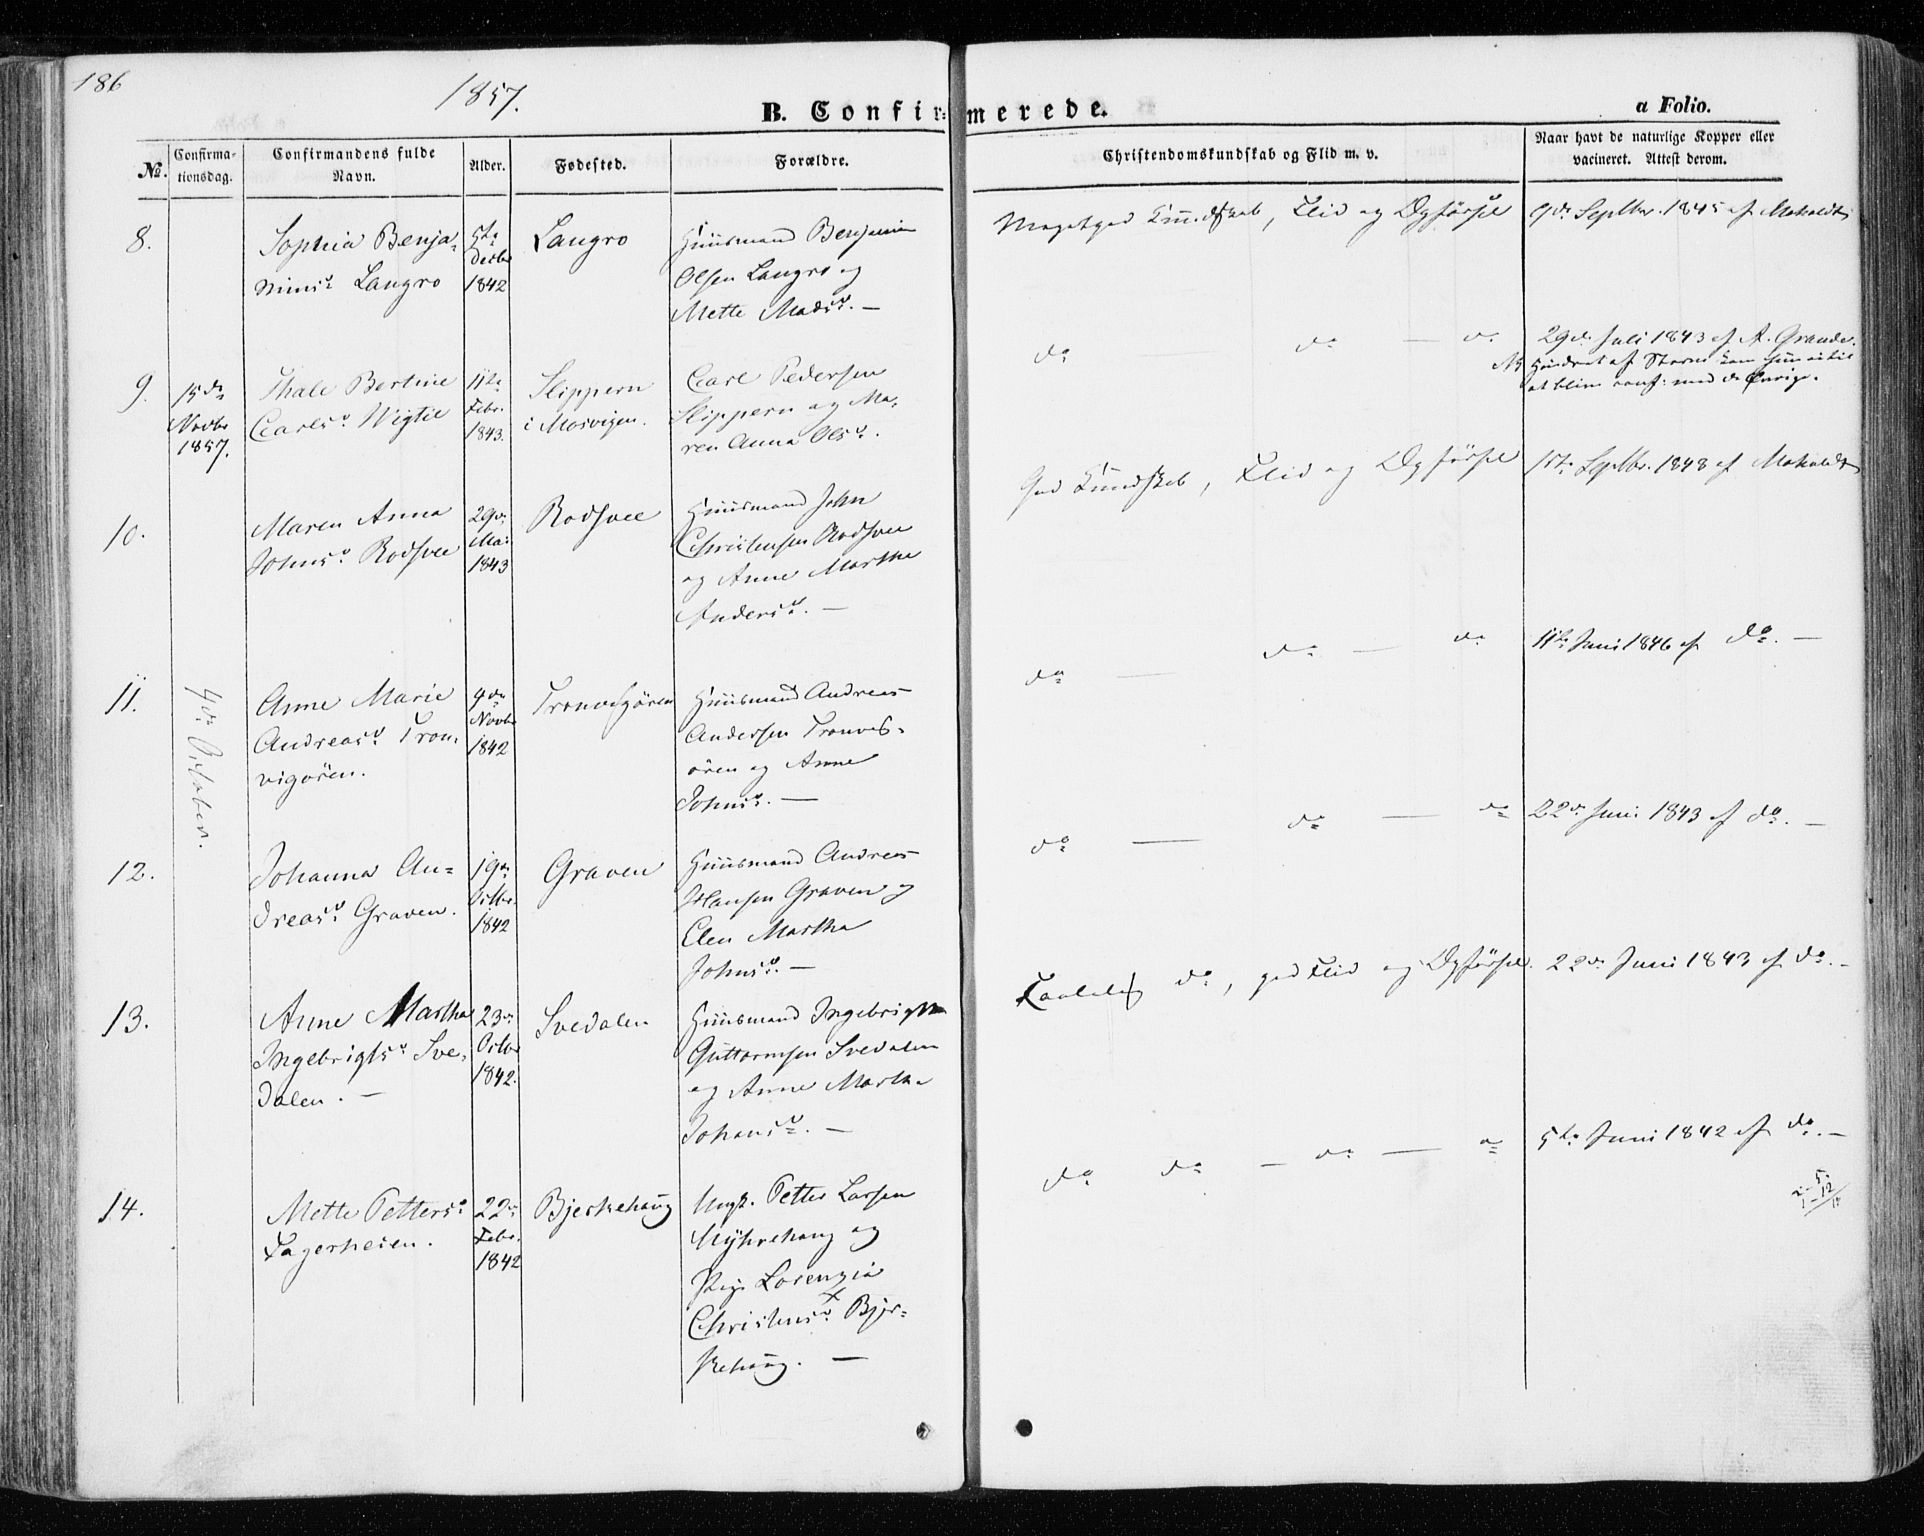 186
1857.
B. Confir=
merede.
a Folio.
No.
Confirma-
tionsdag.
Confirmandens fulde
Navn.
Alder.
Fødested.
Forældre.
Christendomskundskab og Flid m. v.
Naar havt de naturlige Kopper eller
vacineret. Attest derom.
8.
Sophia Benja-
mins. Langro
5te
Decbr
1842
Langro
Huusmand Benjamin
Olsen Langro og
Mette Madsd. —
Megetgod Kundskab, Flid og Opførsel
9de Septbr. 1845 af Moholdt
9.
15de
Novbr
1857.
Thale Bertine
Carlsd. Vigtil
11te
Febr.
1843.
Slippern
i Mosvigen.
Carl Pedersen
Slippern og Ma-
ren Anna Olsd.
do — do — do
29de Juli 1843 af A. Grande.
NB Hindret af Storm kom hun ei til
at blive conf: med de Øvrige.
10.
Maren Anna
Johnsd. Rodsvee
29de
Mai
1843
Rodsvee
Huusmand John
Christensen Rodsvee
og Anne Martha
Andersd. —
God Kundskab, Flid og Opførsel
1te Septbr. 1848 af Moholdt
11.
4de October.
Anne Marie
Andreasd. Tron-
vigören.
4de
Novbr
1842
Tronvigören
Huusmand Andreas
Andersen Tronvig-
ören og Anne
Johnsd. —
do — do — do
11te Juni 1846 af do. —
12.
Johanna An-
dreasd. Graven.
19de
Octbr.
1842
Graven
Huusmand Andreas
Hansen Graven og
Elen Martha
Johnsd. —
do — do — do
22de Juni 1843 af do. —
13.
Anne Martha
Ingebrigtsd. Sve-
dalen. —
23de
Octbr
1842.
Svedalen
Huusmand Ingebrigt
Guttormsen Svedalen
og Anne Martha
Johansd. —
Taalelig do, god Flid og Opførsel.
22de Juni 1843 af do. —
14.
Mette Pettersd.
Fagerheien.
22de
Febr.
1842
Bjerkehaug
Ungk. Petter Larsen
Myhrehaug og
Pige Lorenzia
Christensd. Bjer-
kehaug. —
do do — do — do
5te Juni 1842 af do. —